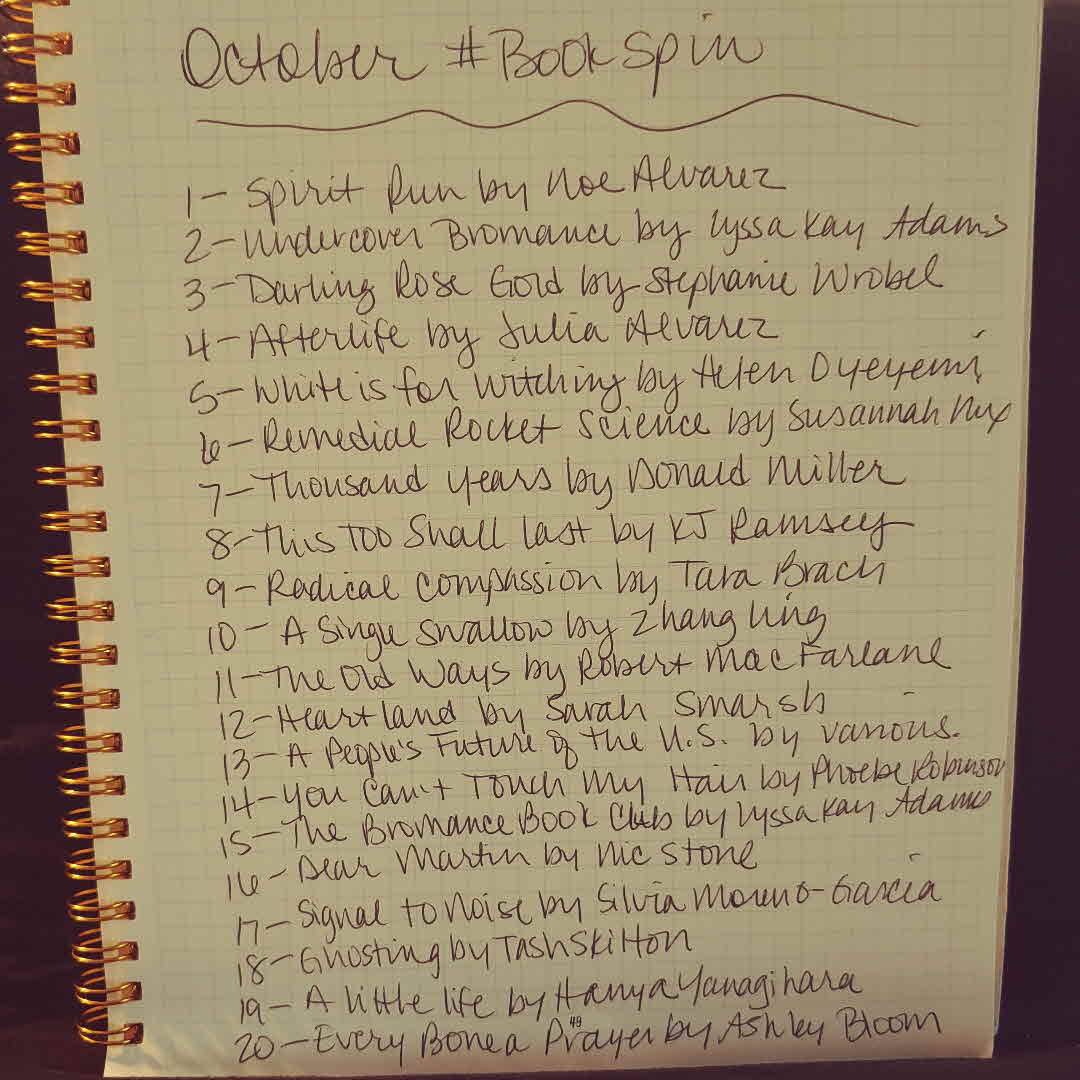 October #BookSpin
1- Spirit Run by Noe Alvarez
2- Undercover Bromance by Lyssa Kay Adams
3- Darling Rose Gold by Stephanie Wrobel
4- Afterlife by Julia Alvarez
5- White is for Witching by Helen Oyeyemi
6- Remedial Rocket Science by Susannah Nix
7- Thousand Years by Donald Miller
8- This Too Shall Last by KJ Ramsey
9- Radical Compassion by Tara Brach
10- A Single Swallow by Zhang Ling
11- The Old Ways by Robert MacFarlane
12- Heartland by Sarah Smarsh
13- A People's Future of the U.S. by various.
14- You Can't Touch My Hair by Phoebe Robinson
15- The Bromance Book Club by Lyssa Kay Adams
16- Dear Martin by Nic Stone
17- Signal to Noise by Silvia Moreno-Garcia
18- Ghosting by Tash Skilton
19- A little life by Hanya Yanagihara
20- Every Bone a Prayer by Ashley Bloom